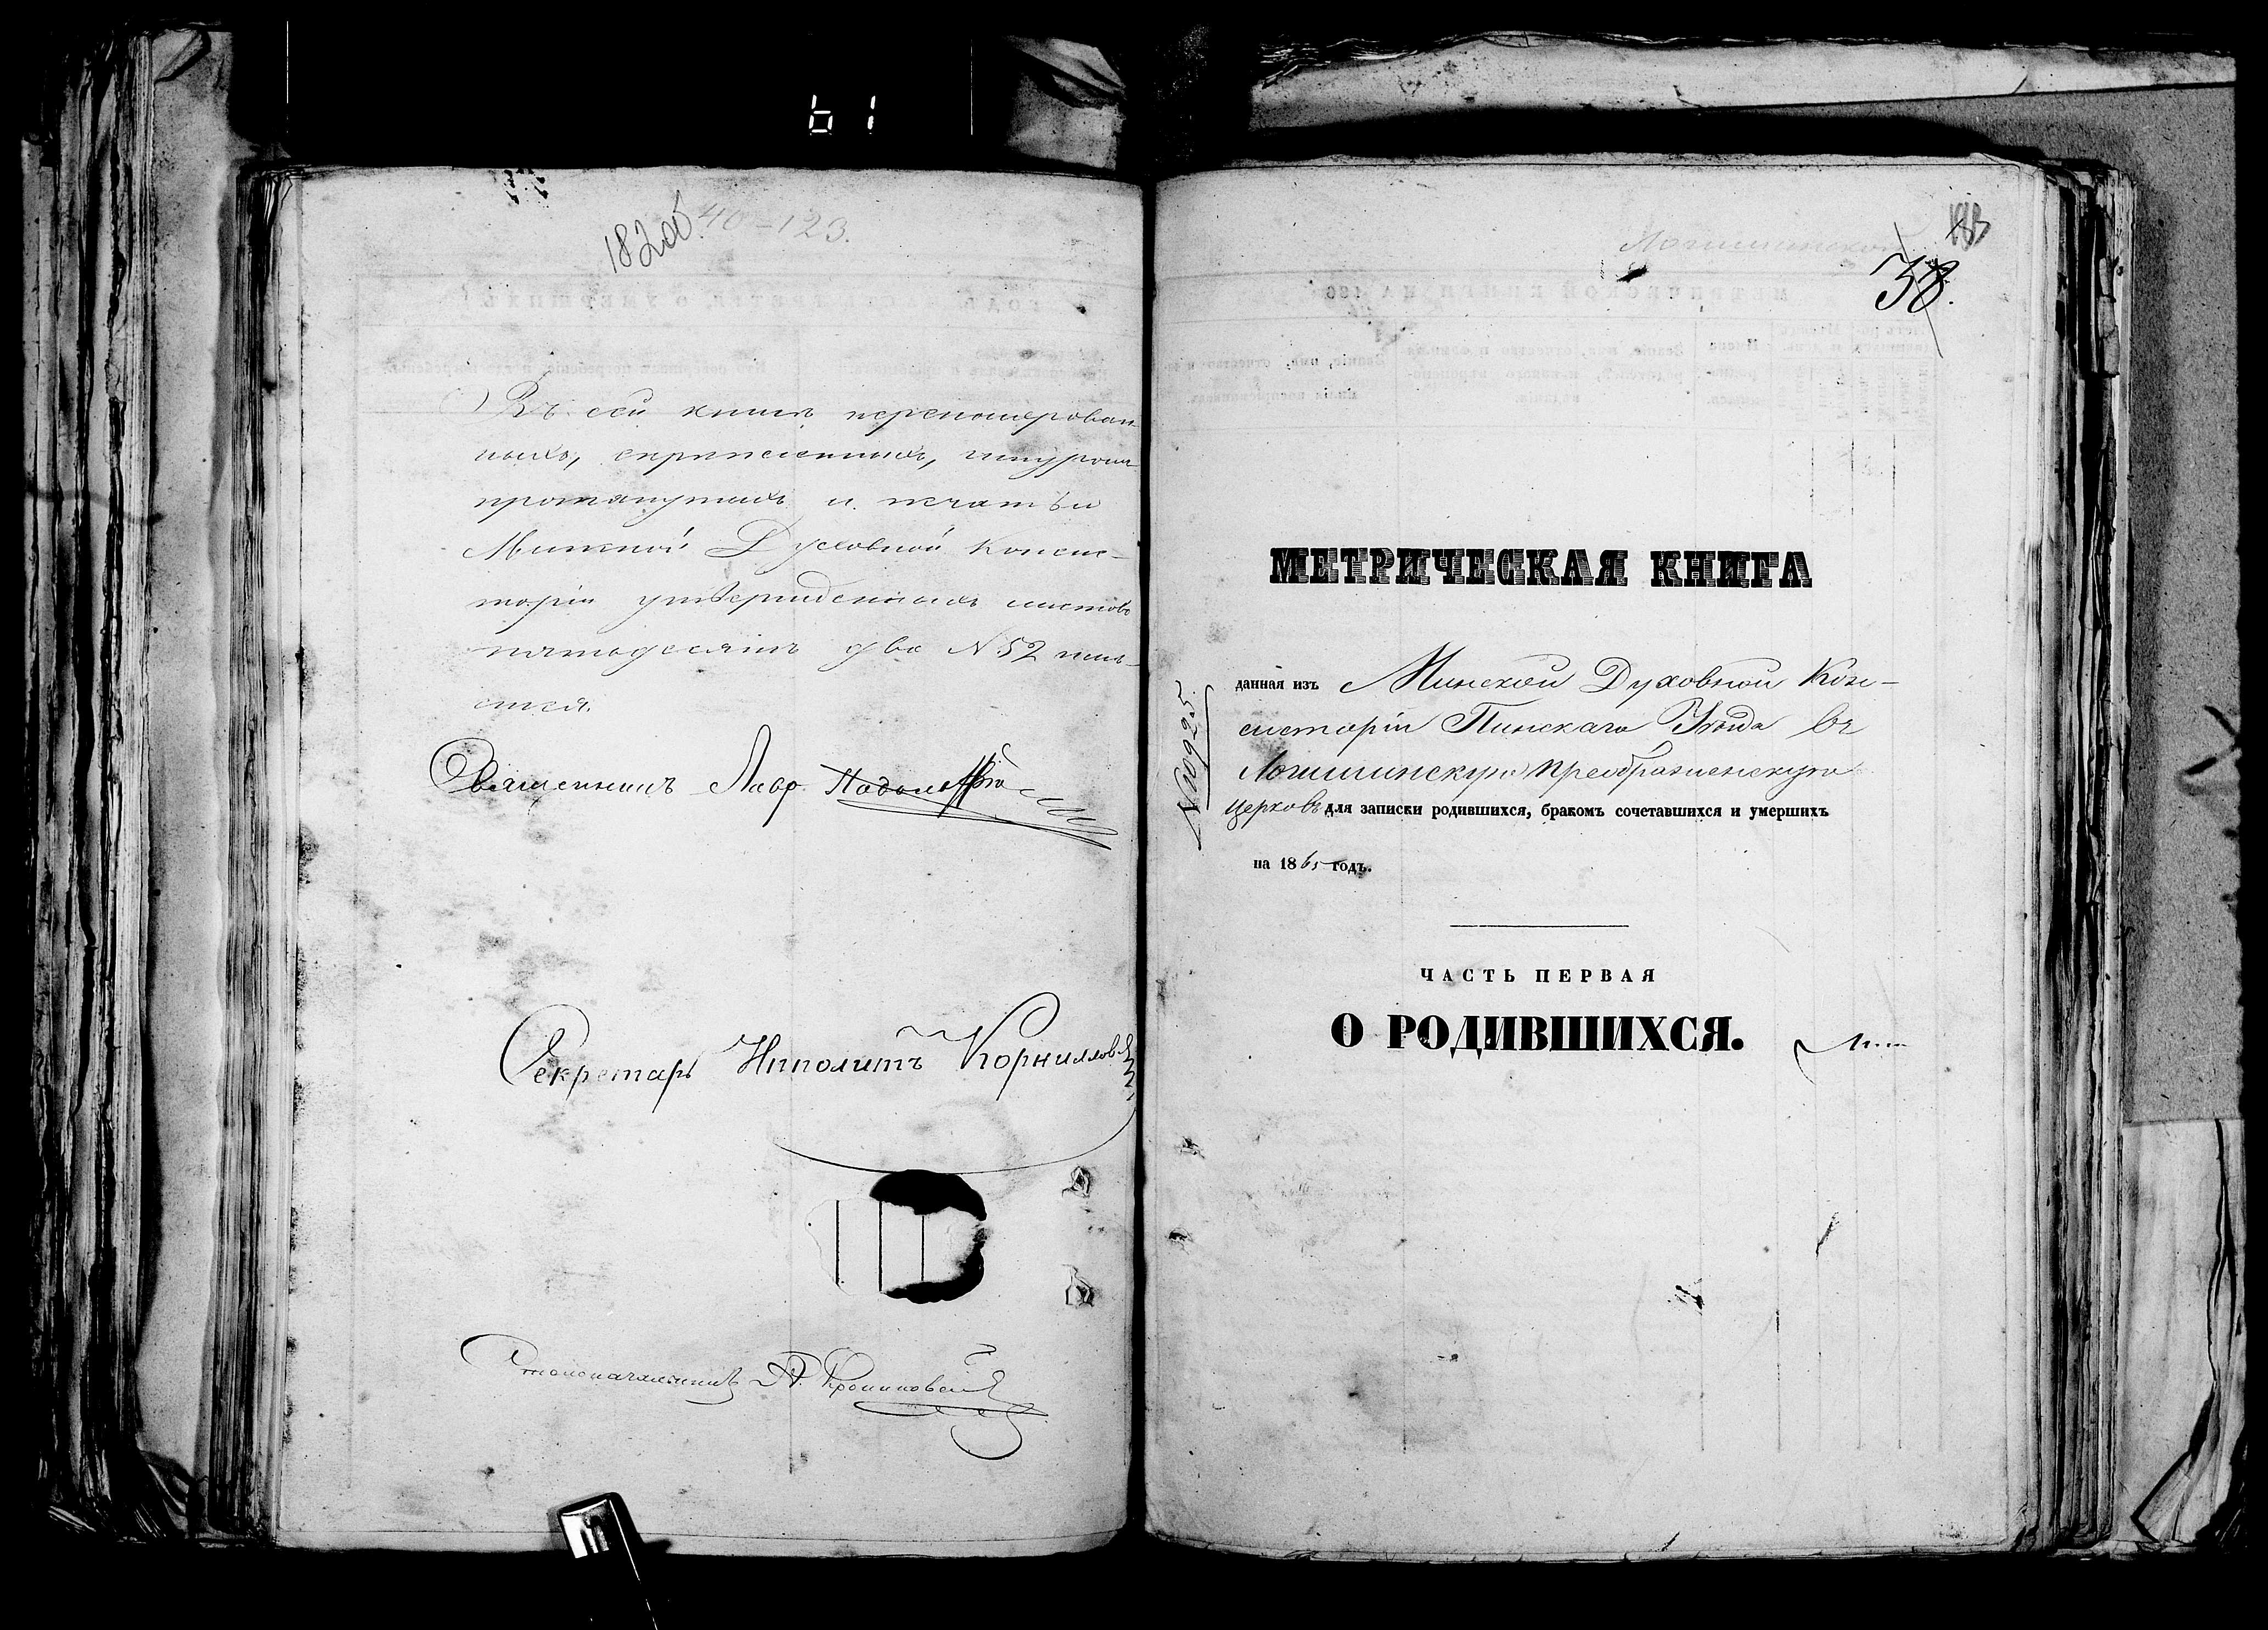 61
182об. 40-123.
Въ сей книгѣ перенумерован
ныхъ, скрѣпленныхъ, шнуромъ
протянутыхъ и печатью
Минской Духовной Консис-
торіи утвержденныхъ листовъ
пятьдесятъ два № 52 чис-
Священникъ Лавр.
Секретарь Ипполитъ Корниллов
Столоначальникъ А.
183
Логишинской
38.
МЕТРИЧЕСКАЯ КНИГА
данная изъ Минской Духовной Кон-
систоріи Пинскаго Уѣзда въ
Логишинскую Преображенскую
церковь для записки родившихся, бракомъ сочетавшихся и умершихъ
на 1865 годъ.
№ 10925
ЧАСТЬ ПЕРВАЯ
О РОДИВШИХСЯ.